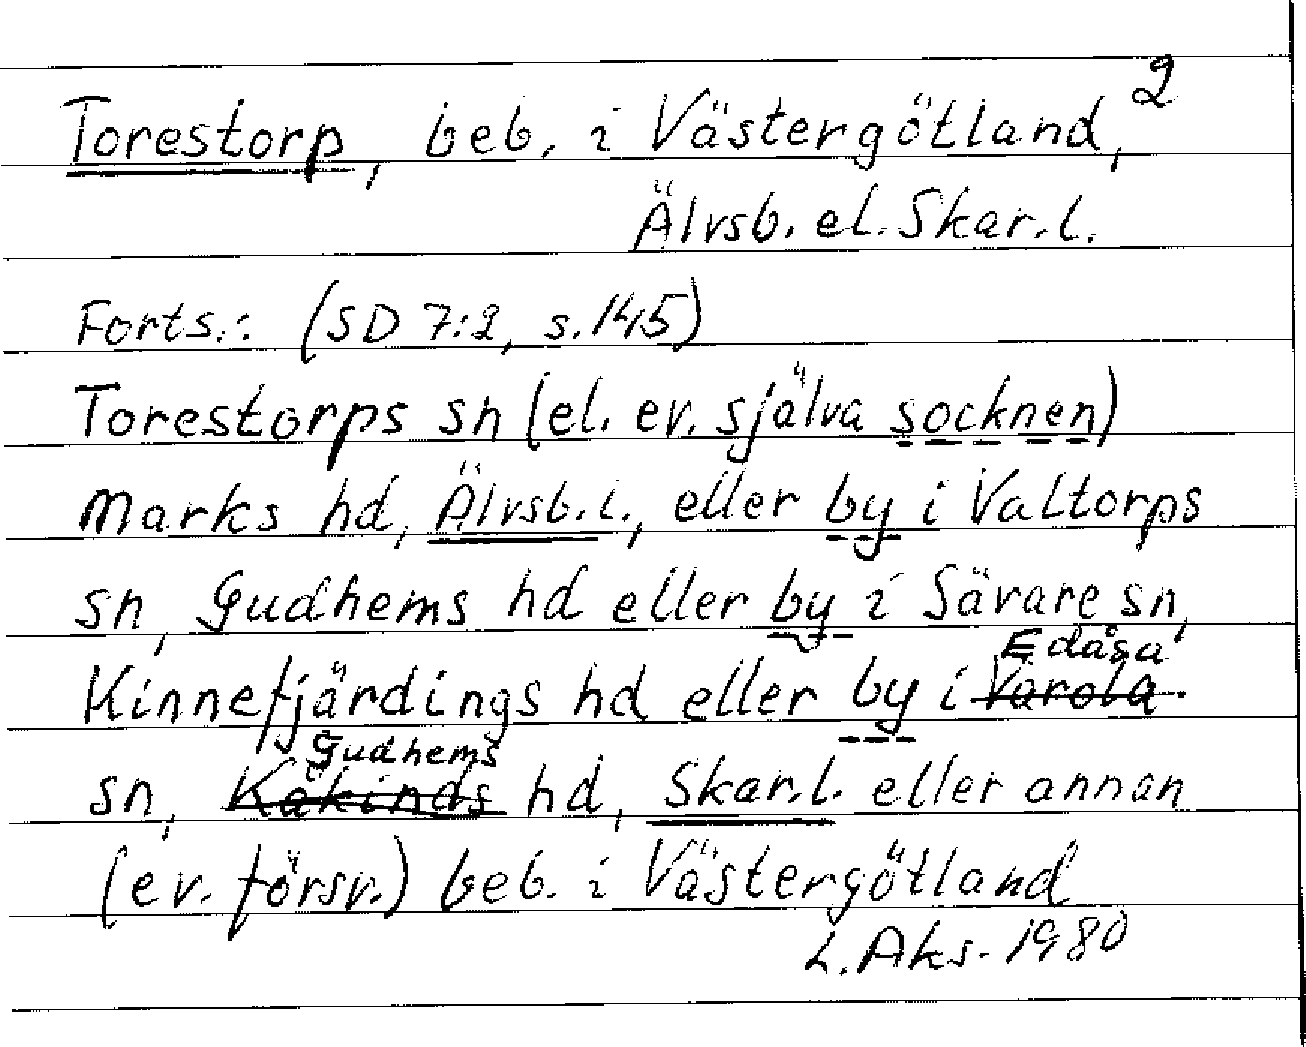 2
Torestorp, beb. i Västergötland,
Älvsb. el. Skar. l.
Forts.: (SD 7:2, s. 145)
Torestorps sn (el. ev. själva socknen)
Marks hd, Älvsb. l., eller by i Valtorps
sn, Gudhems hd eller by i Sävare sn,
Edåsa
Kinnefjärdings hd eller by i Varola
Gudhems
sn, Kåkinds hd, Skar. l. eller annan
(ev. försv.) beb. i Västergötland
L. Aks. 1980